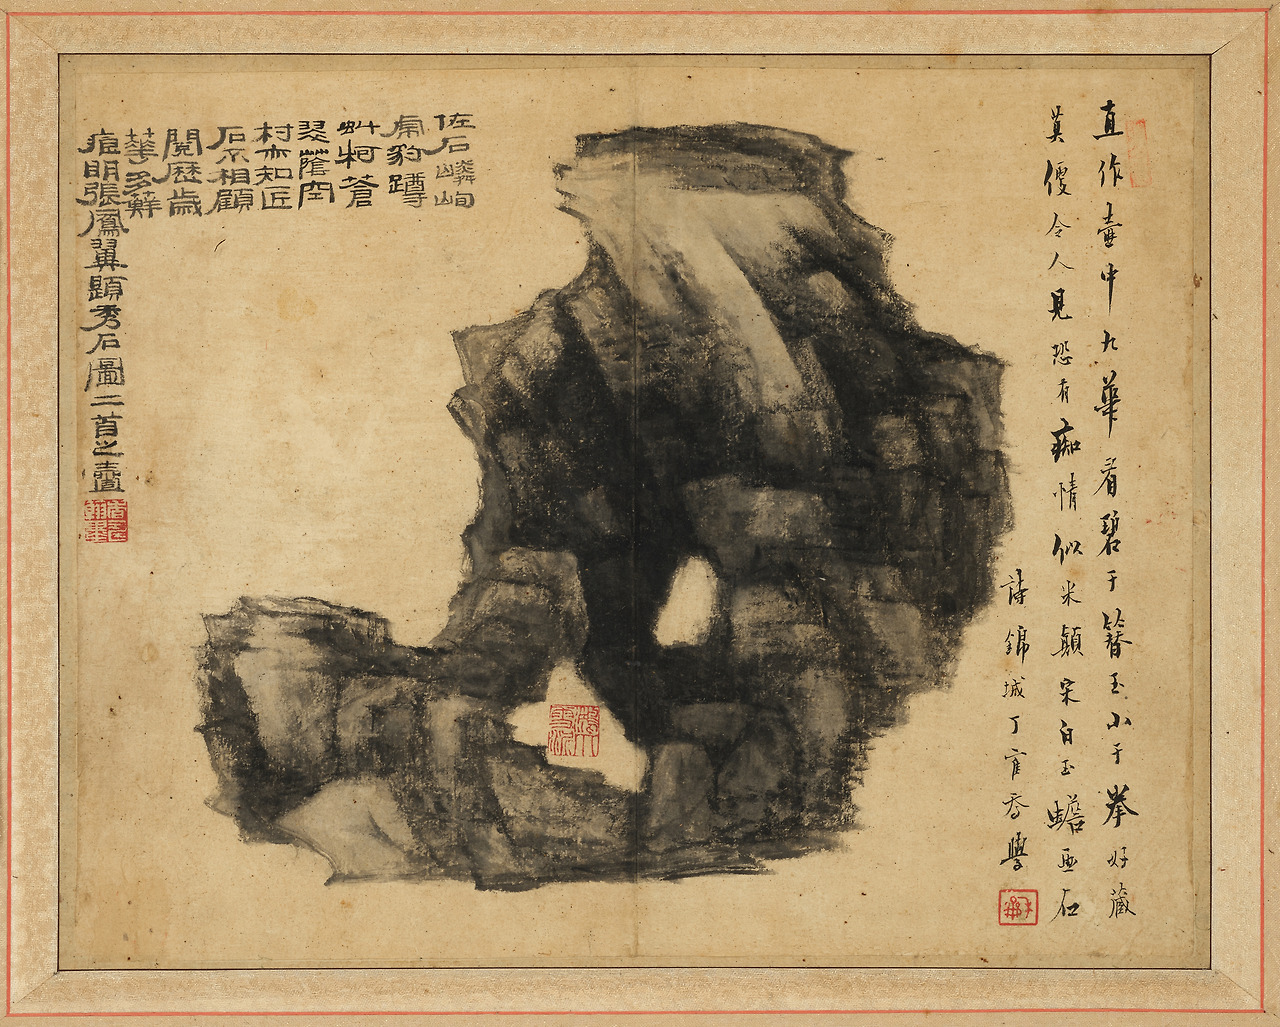 直作壺中九華看碧于簪玉小于拳好藏
莫便令人見恐有痴情似米顛宋白玉蟾画石
詩錦城丁
恠石嶙峋
虎豹蹲
虬柯蒼
翠蔭空
村亦知匠
石不相顧
閱歷歲
華多蘚
痕明張鳳翼題秀石圖二首之壹